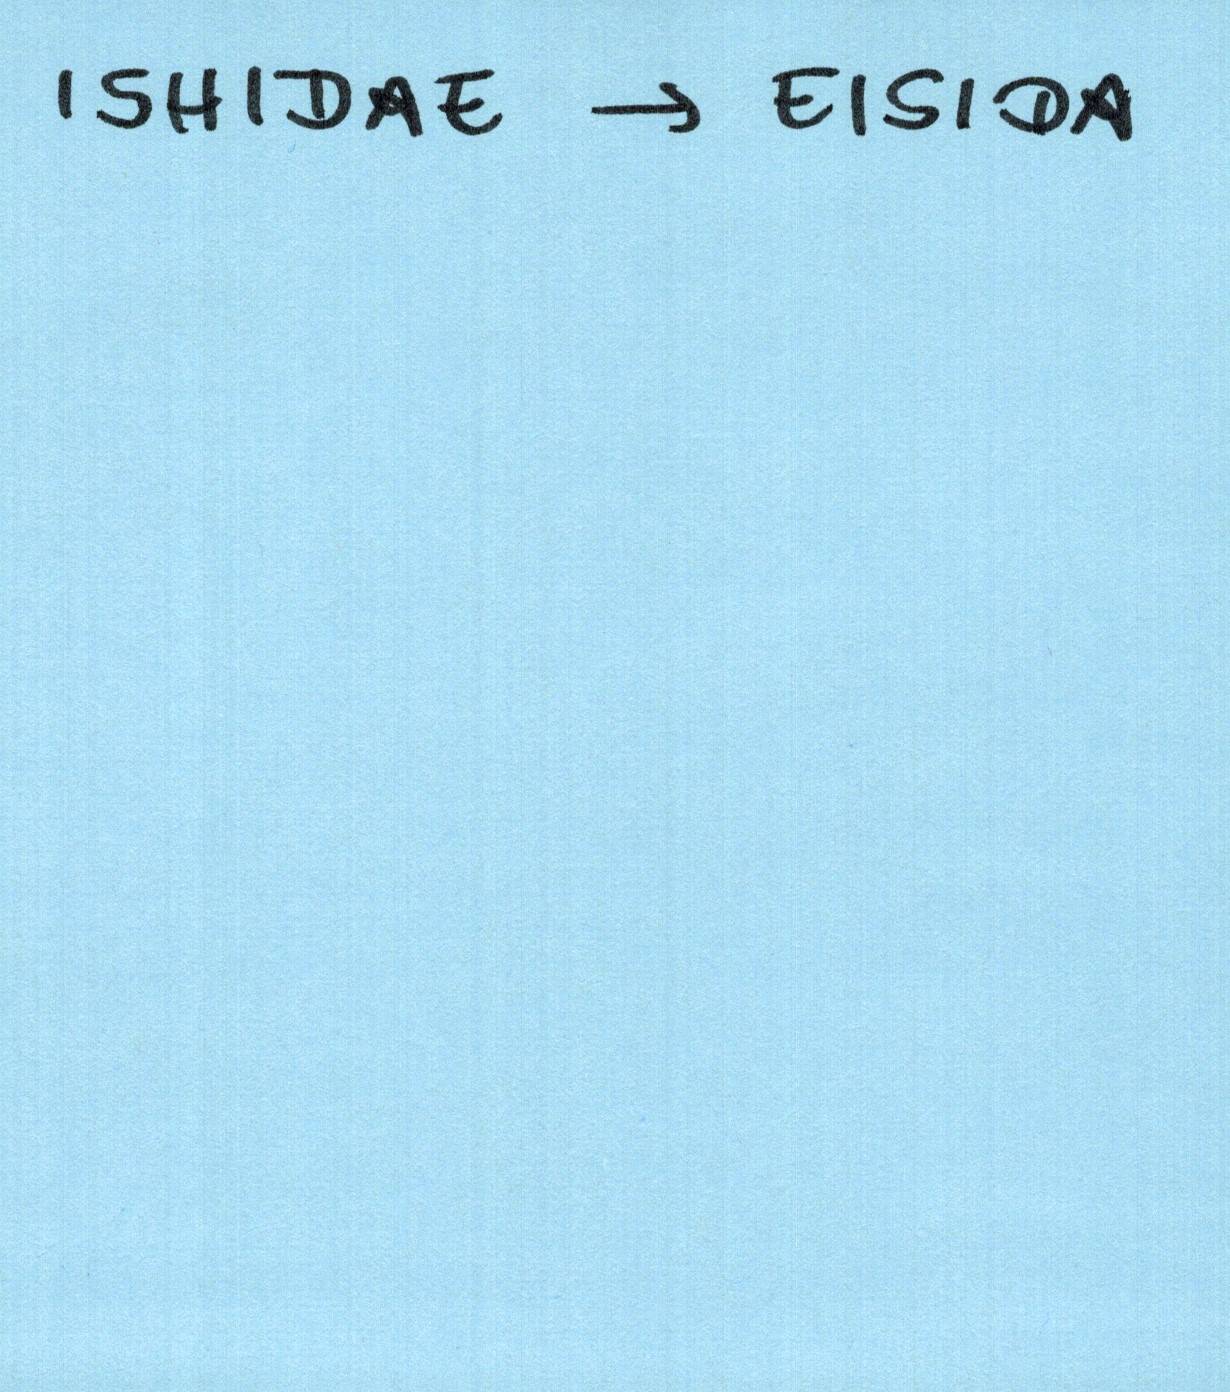 ISHIDAE → EISIDA